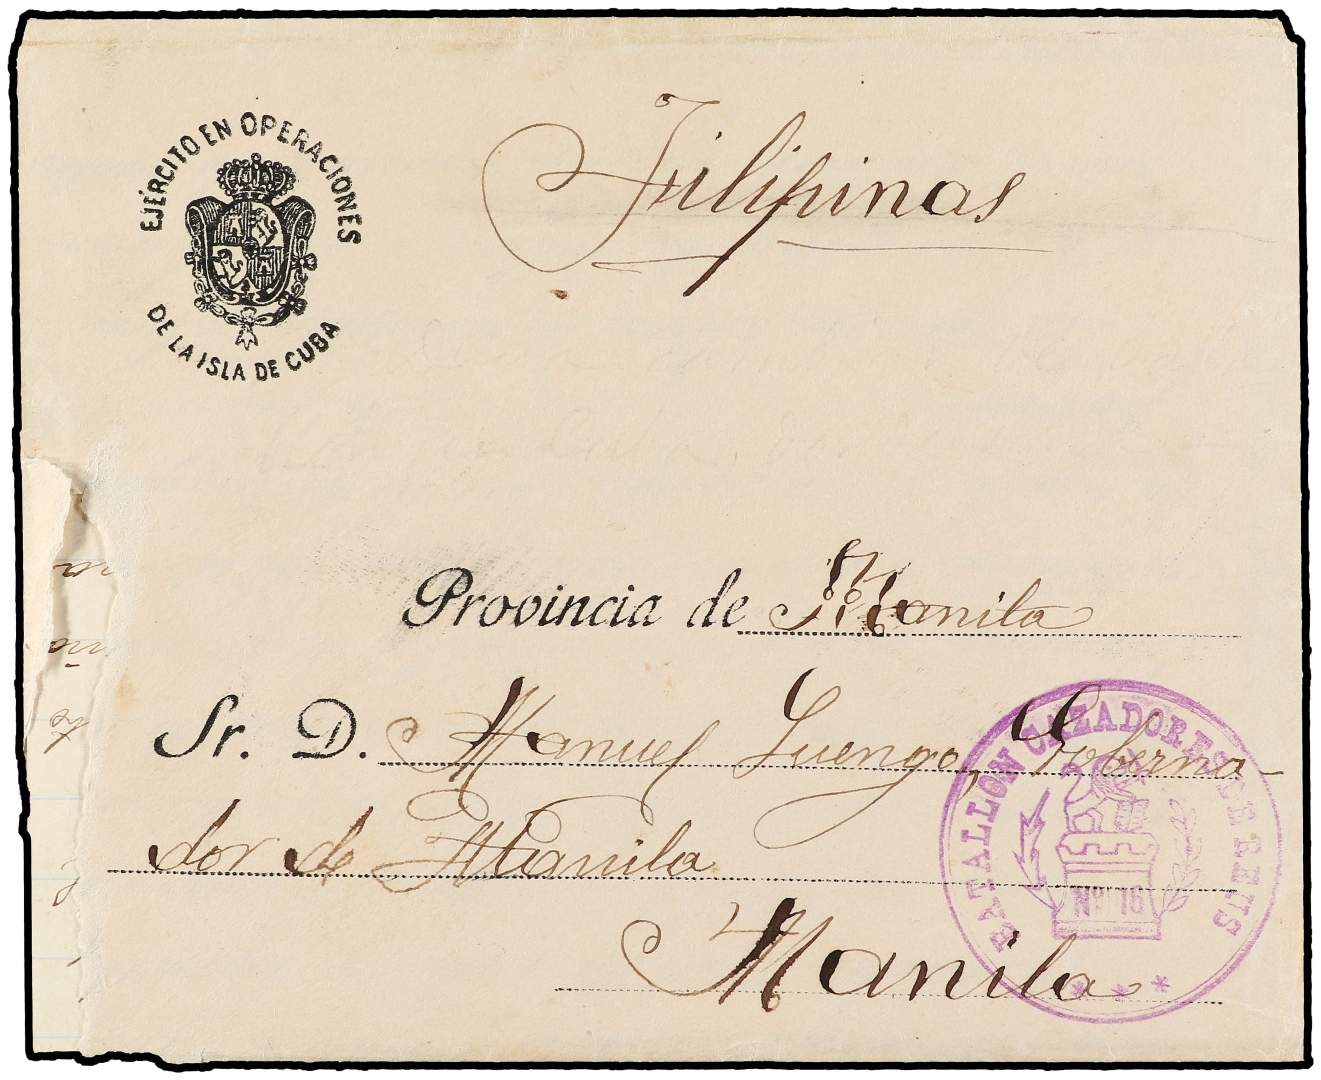 EJÉRCITO EN OPERACIONES
DE LA ISLA DE CUBA
Filipinas
Provincia de Manila
Sr. D. Manuel Luengo, Goberna-
dor de Manila
Manila
BATALLON CAZADORES DE REUS
Nº 16